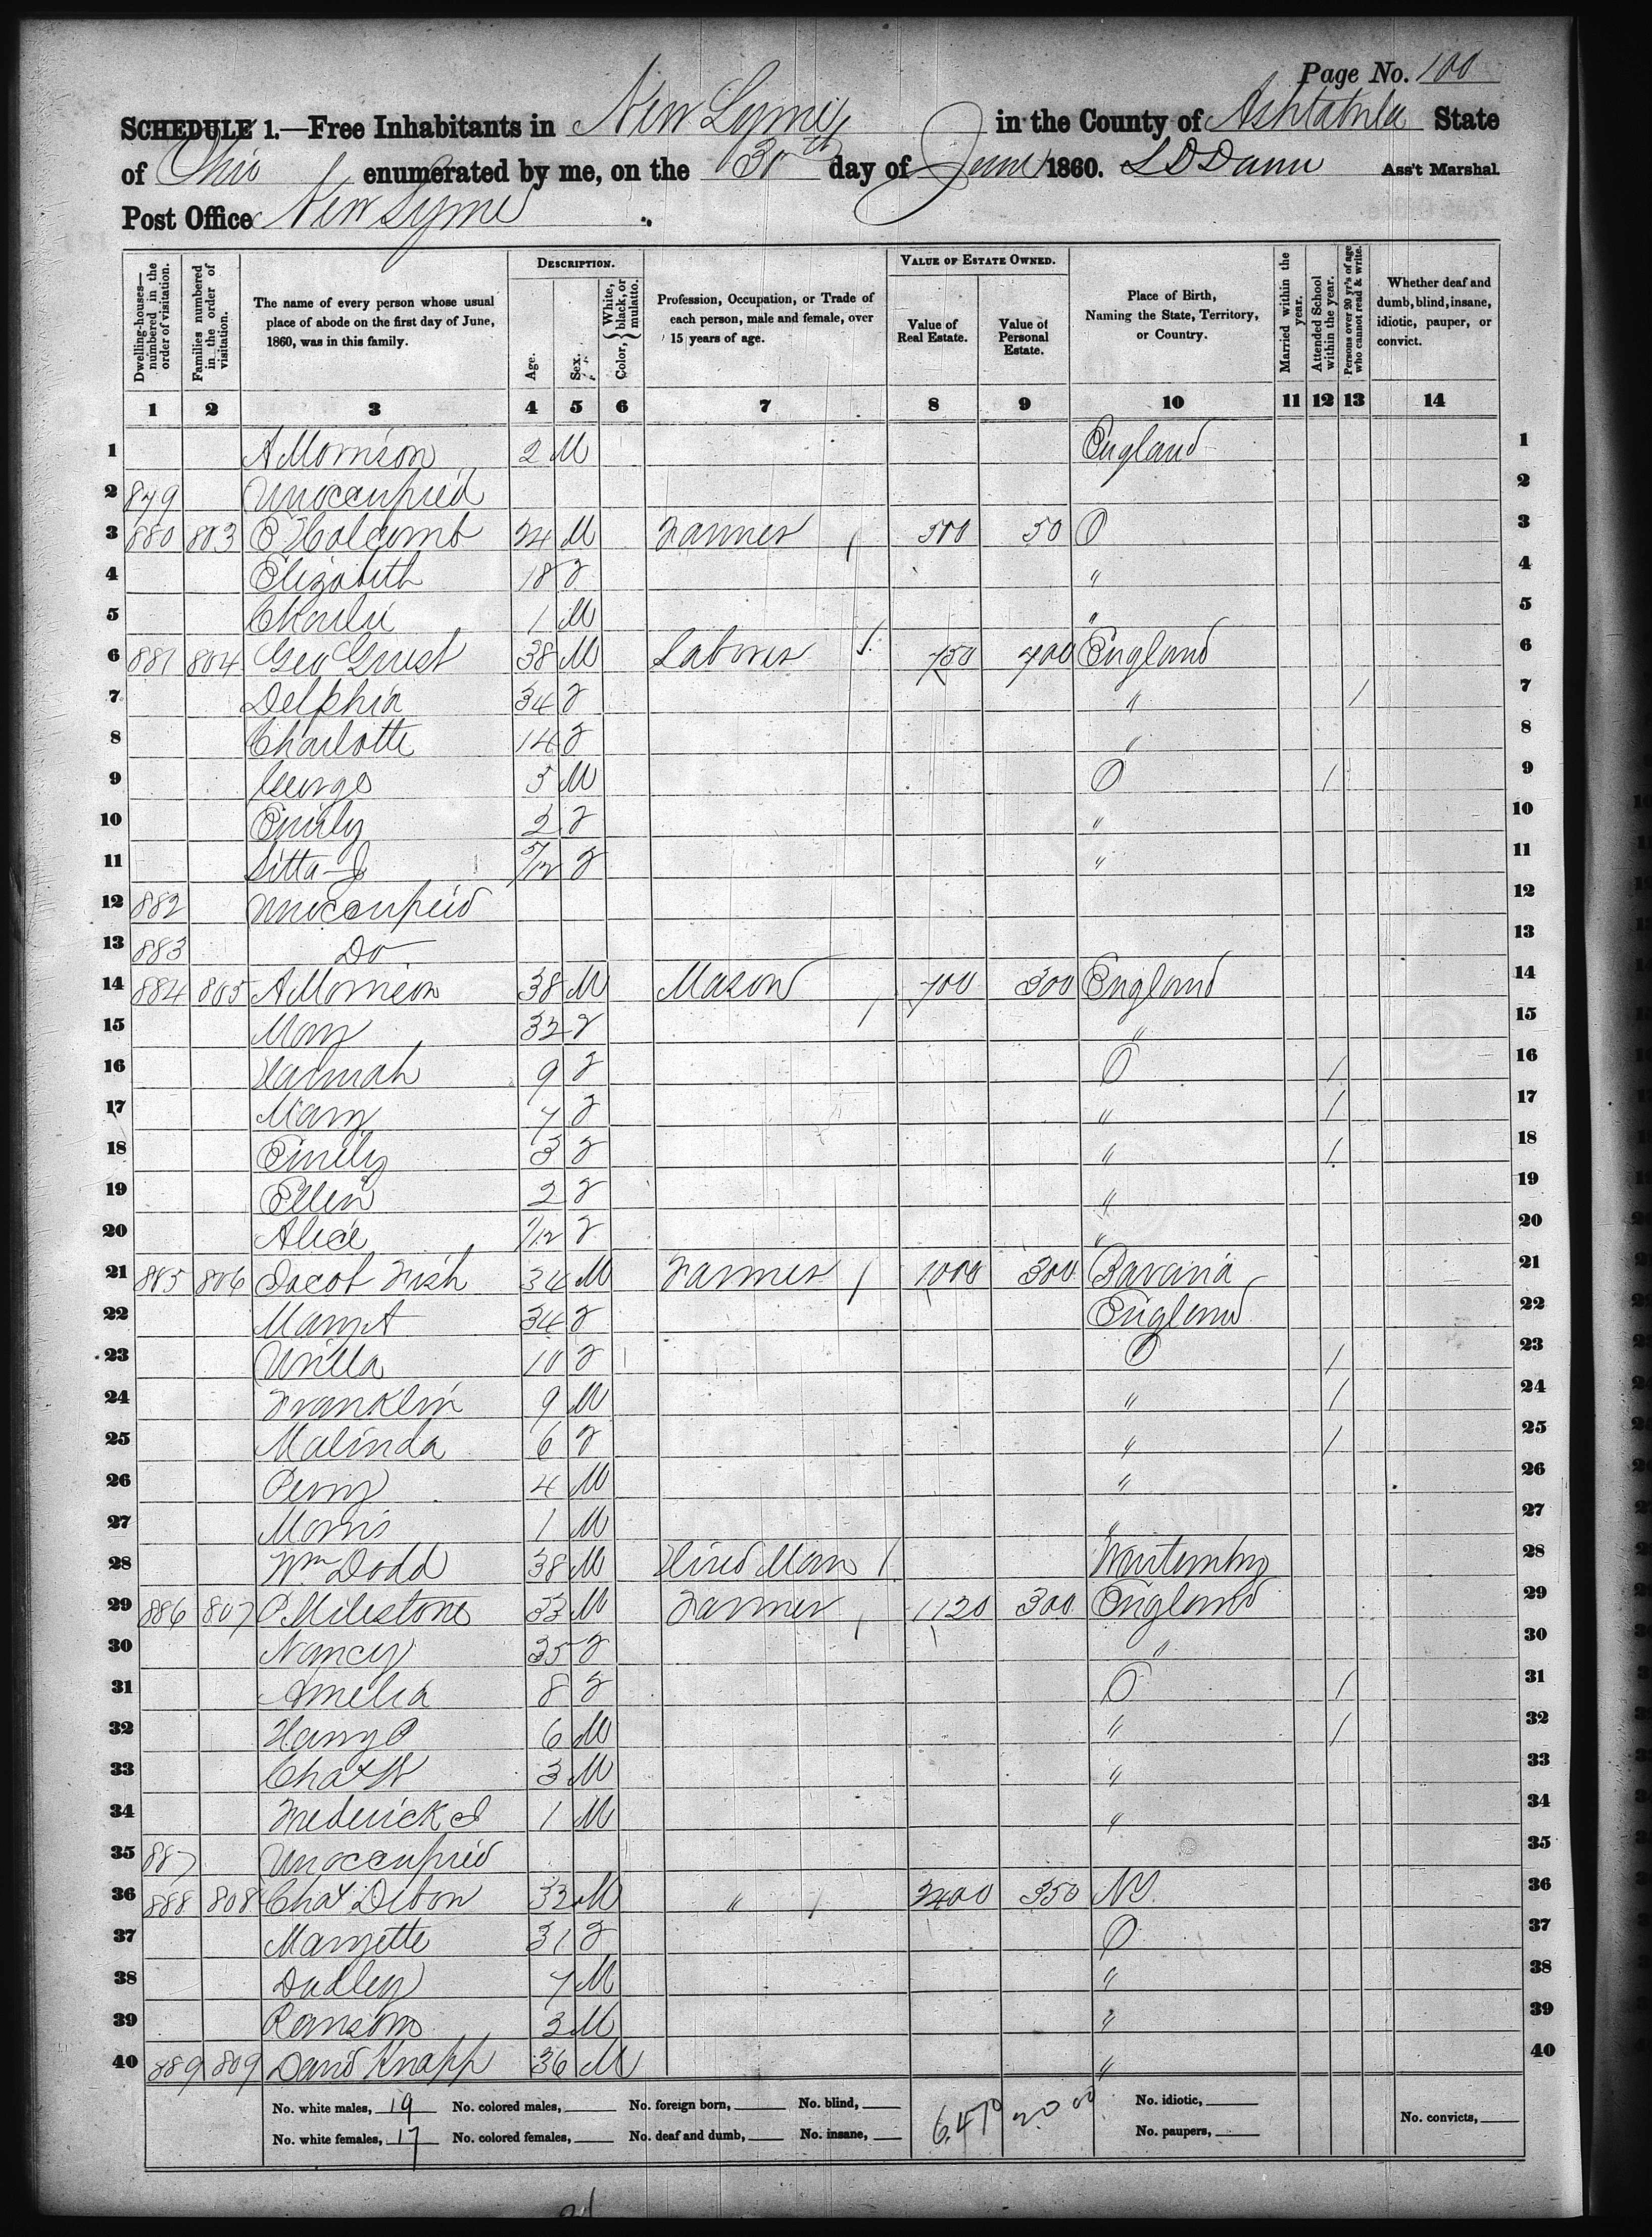 Page No. 100
SCHEDULE 1.—Free Inhabitants in New Lyme in the County of Ashtabula State
of Ohio enumerated by me, on the 30th day of June 1860. L D Dunn Ass't Marshal
Post Office New Lyme
Dwelling-houses—numbered in the order of visitation.
Families numbered in the order of visitation.
The name of every person whose usual place of abode on the first day of June, 1860, was in this family.
DESCRIPTION.
Age.
Sex.
Color, { White, black, or mulatto.
Profession, Occupation, or Trade of each person, male and female, over 15 years of age.
VALUE OF ESTATE OWNED.
Value of Real Estate.
Value of Personal Estate.
Place of Birth, Naming the State, Territory, or Country.
Married within the year.
Attended School within the year.
Persons over 20 yr's of age who cannot read & write.
Whether deaf and dumb, blind, insane, idiotic, pauper, or convict.
1 2 3 4 5 6 7 8 9 10 11 12 13 14
1 A Morrison 2 M England 1
2 879 Unoccupied 2
3 880 803 P Holcomb 24 M Farmer / 500 50 O 3
4 Elizabeth 18 F " 4
5 Charlie 1 M " 5
6 881 804 Geo Grist 38 M Laborer / 750 400 England 6
7 Delphia 34 F " / 7
8 Charlotte 14 F " 8
9 George 5 M O / 9
10 Emily 2 F " 10
11 5/12 F " 11
12 882 Unoccupied 12
13 883 Do 13
14 884 805 A Morrison 38 M Mason / 700 300 England 14
15 Mary 32 F " 15
16 Hannah 9 F O / 16
17 Mary 7 F " / 17
18 Emily 3 F " / 18
19 Ellen 2 F " 19
20 Alice 1/12 F " 20
21 885 806 Jacob Fish 34 M Farmer / 1000 300 Bavaria 21
22 Mary A 34 F England 22
23 Urilla 10 F O / 23
24 Franklin 9 M " / 24
25 Malinda 6 F " / 25
26 Perry 4 M " 26
27 Morris 1 M " 27
28 Wm Dodd 38 M Hired Man / 28
29 886 807 P Milestone 33 M Farmer / 1120 300 England 29
30 Nancy 35 F " 30
31 Amelia 8 F O / 31
32 Harry P 6 M " / 32
33 Chas W 3 M " 33
34 Frederick J 1 M " 34
35 887 Unoccupied 35
36 888 808 Chas Dibon 33 M " / 2400 350 NY. 36
37 Maryette 31 F O 37
38 Dudley 7 M " 38
39 Ransom 3 M " 39
40 889 809 David Knapp 36 M " 40
No. white males, 19 No. colored males, No. foreign born, No. blind, 6,470 20 00 No. idiotic,
No. white females, 17 No. colored females, No. deaf and dumb, No. insane, No. paupers, No. convicts,